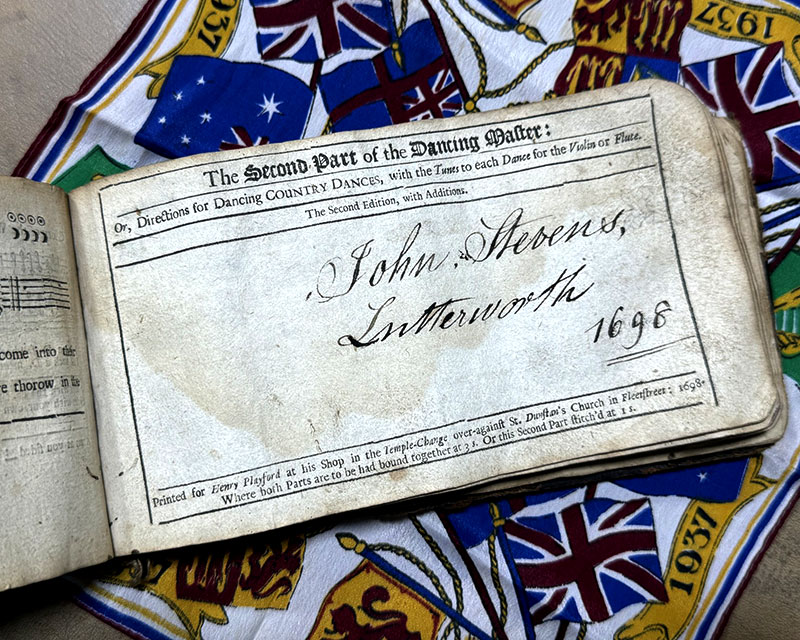 The Second Part of the Dancing Master:
Or, Directions for Dancing COUNTRY DANCES, with the Tunes to each Dance for the Violin or Flute.
The Second Edition, with Additions.
John Stevens,
Lutterworth
1698
Printed for Henry Playford at his Shop in the Temple-Change over-against St. Dunstan's Church in Fleetstreet: 1698.
Where both Parts are to be had bound together at 3 s. Or this Second Part stitch'd at 1 s.
come into
thorow in the
1937
1937
1937